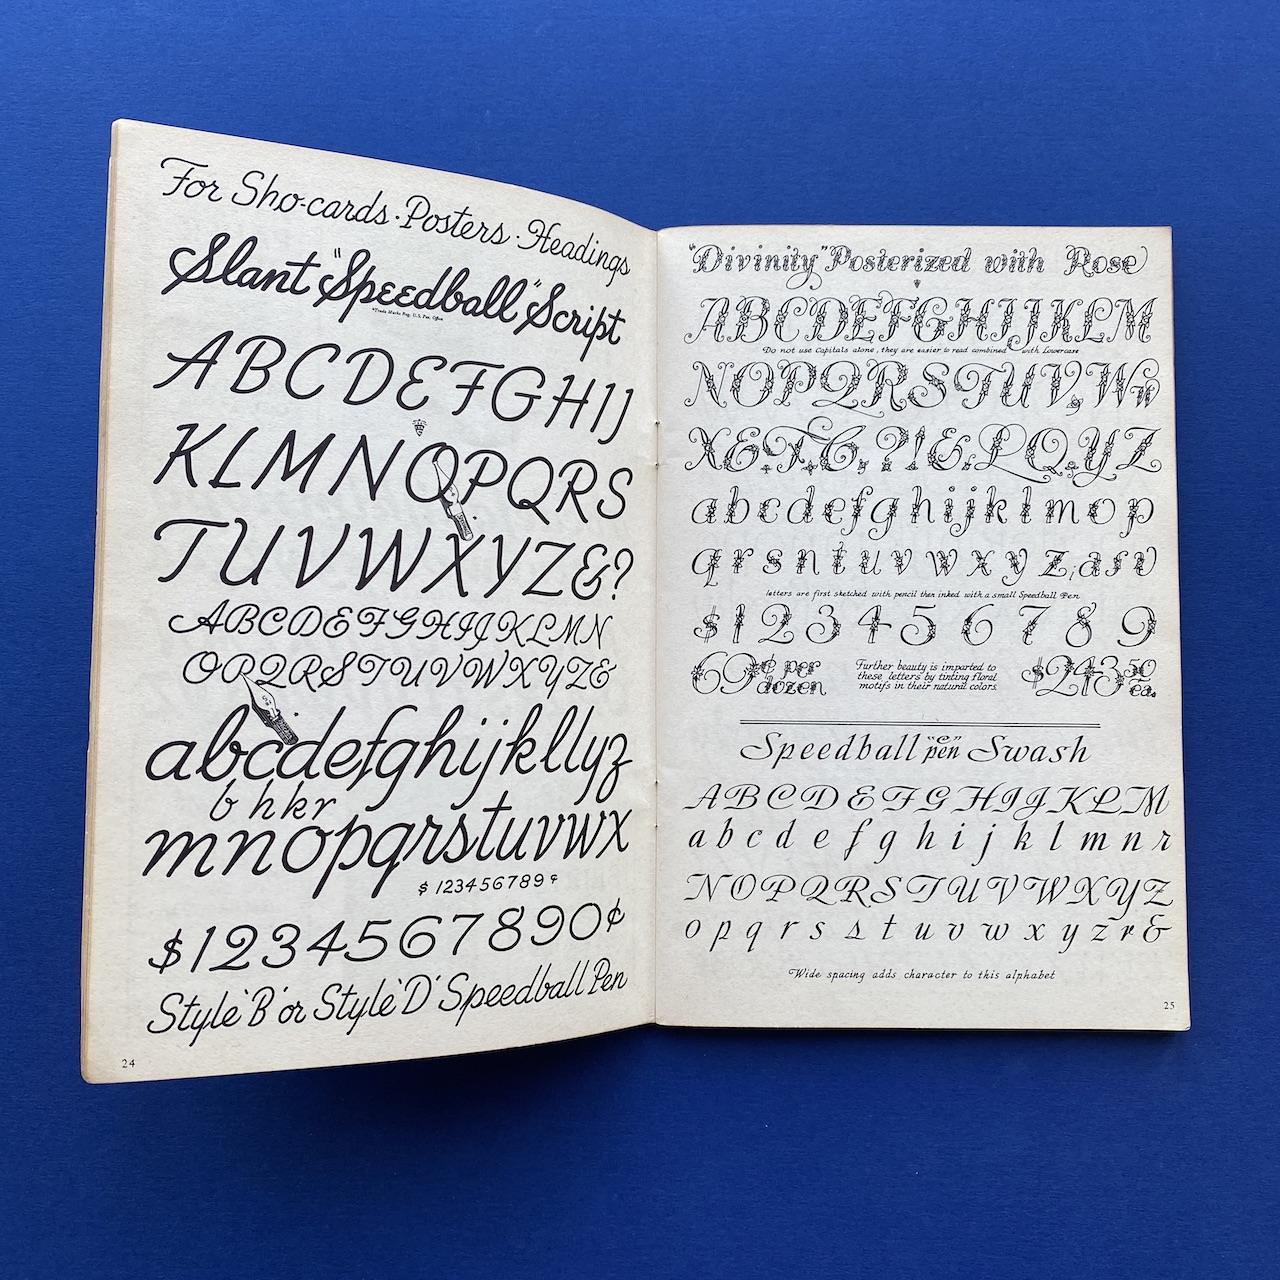 For Sho-cards · Posters · Headings
Slant "Speedball" Script
*Trade Marks Reg. U.S. Pat. Office
ABCDEFGHIJ
KLMNOPQRS
TUVWXYZ&?
ABCDEFGHIJKLMN
OPQRSTUVWXYZ&
abcdefghijkllyz
b h k r
mnopqrstuvwx
$ 123456789 ¢
$1234567890¢
Style 'B' or Style 'D' Speedball Pen
24
"Divinity" Posterized with Rose
ABCDEFGHIJKLM
Do not use Capitals alone, they are easier to read combined with Lowercase
NOPQRSTUV,W
X&.T.,?!&.LQ.YZ
abcdefghijklmop
qrsntuvwxyz;
letters are first sketched with pencil then inked with a small Speedball Pen
$123456789
69¢ per dozen
Further beauty is imparted to
these letters by tinting floral
motifs in their natural colors.
$243.50 ea.
Speedball "C" pen Swash
ABCDEFGHIJKLM
abcdefghijklmnr
NOPQRSTUVWXYZ
opqrsstuvwxyzr&
Wide spacing adds character to this alphabet
25